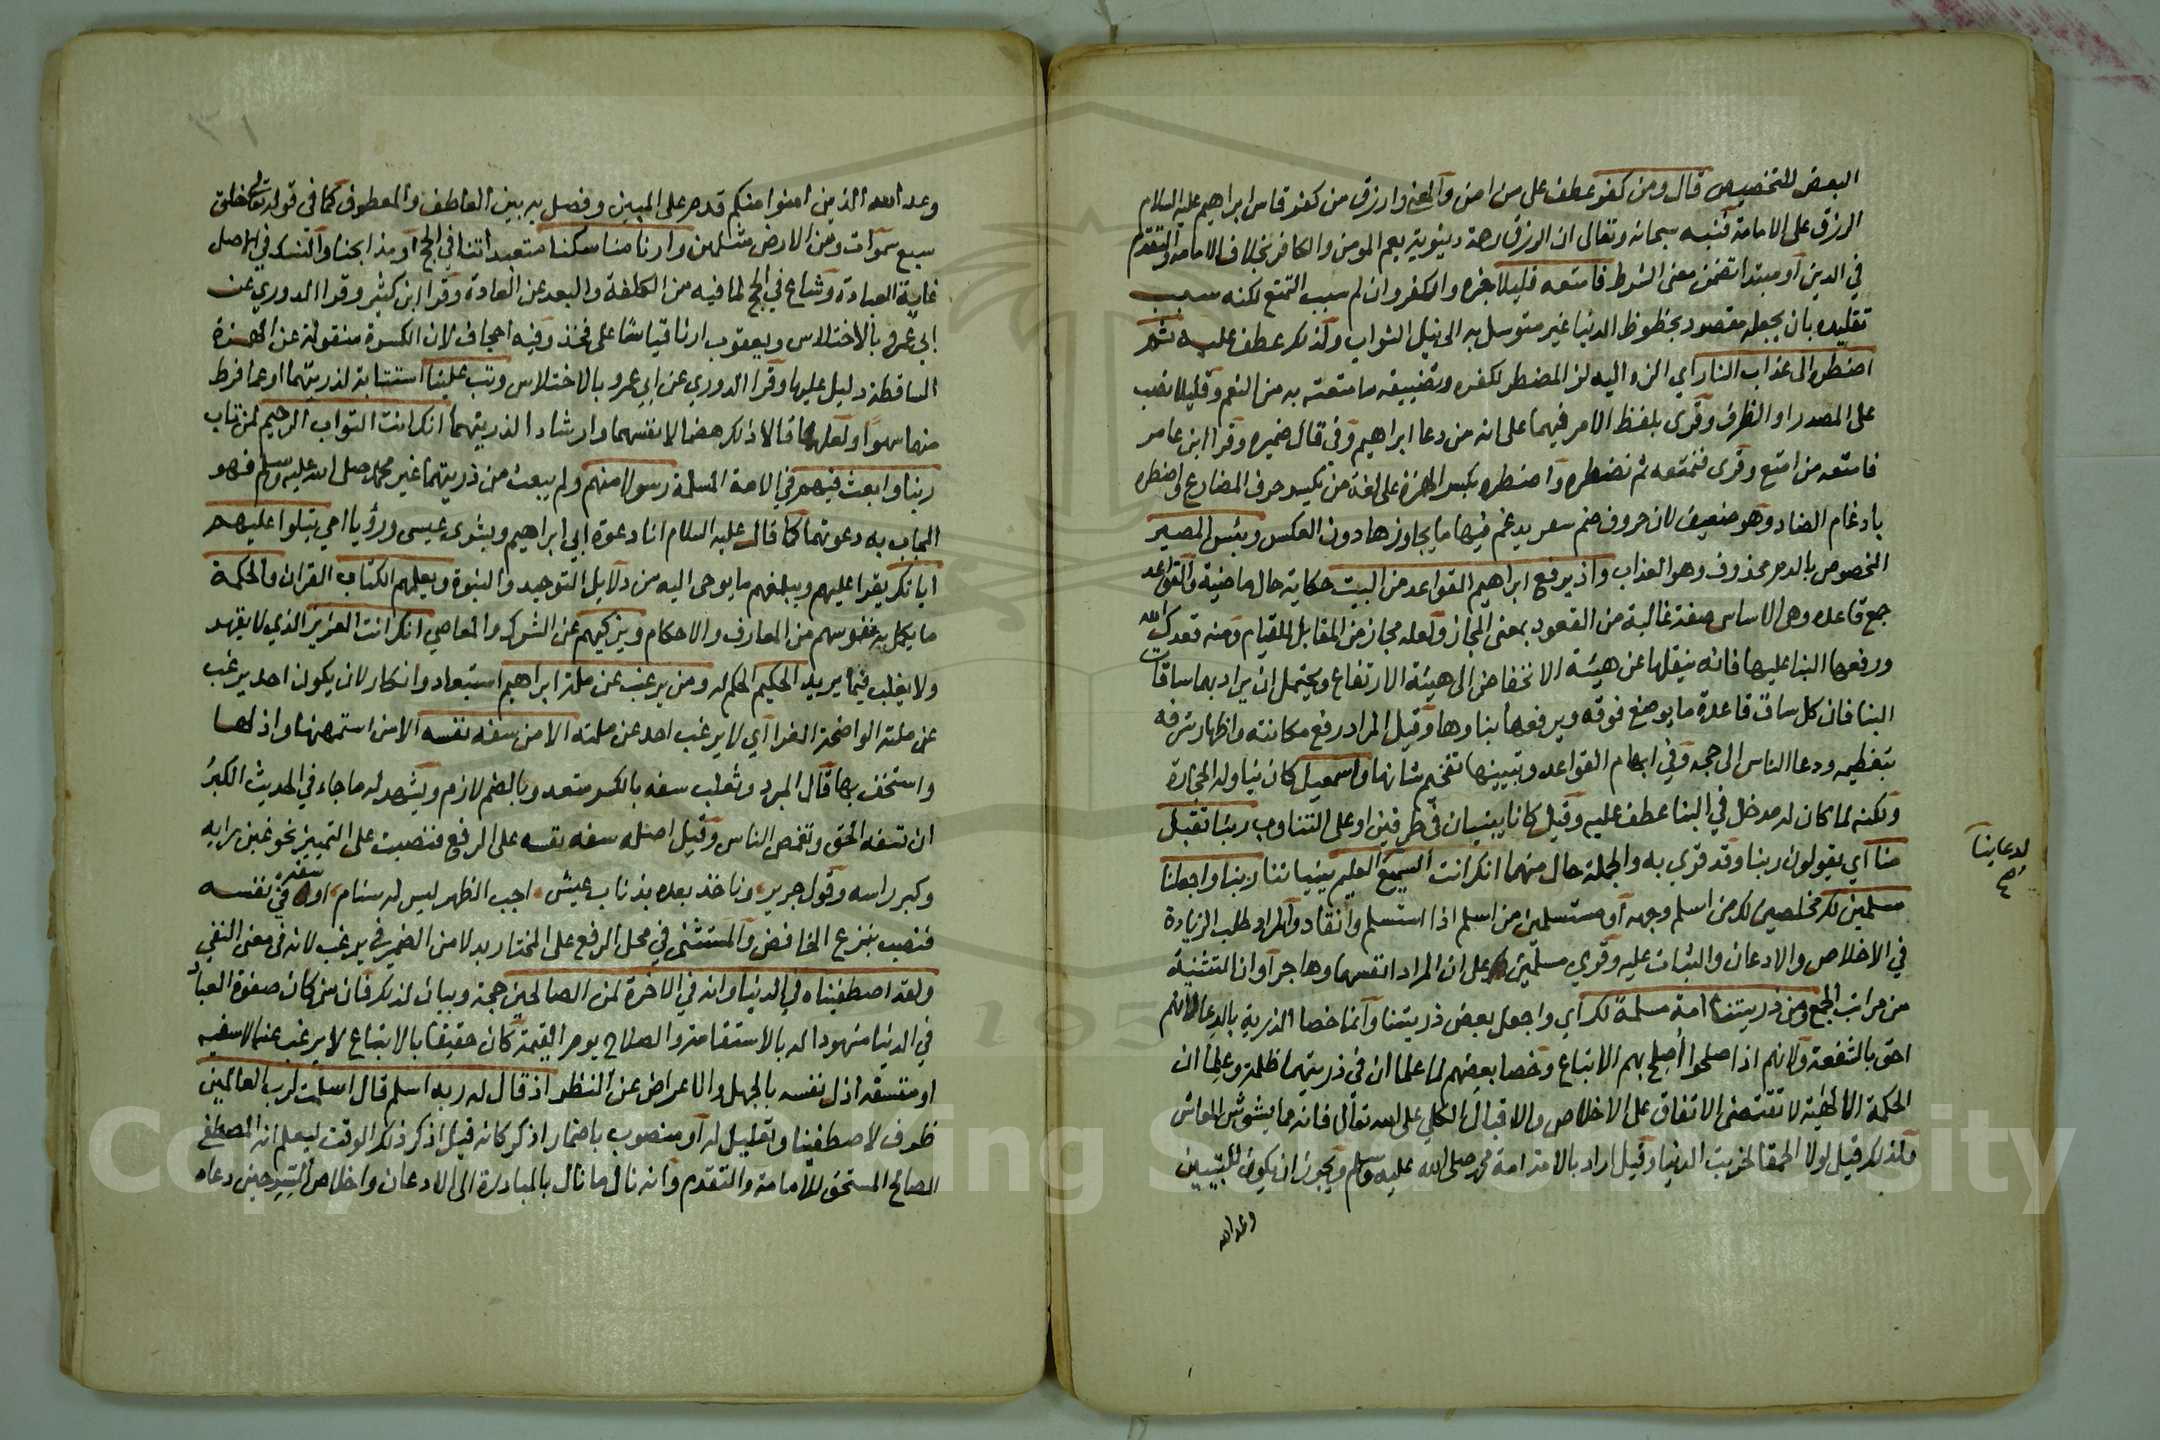 البعض للتخصيص قال ومن كفر عطف على من امن والمعنى وارزق من كفر قاس ابراهيم عليه السلام
الرزق على الامامة فنبه سبحانه وتعالى ان الرزق رحمة دينوية يعم المومن والكافر بخلاف الامامة والتقدم
في الدين او مبتدا تضمن معنى الشرط فامتعه قليلا خبره والكفر وان لم يسبب التمتع لكنه سبب
تقليله بان يجعله مقصورا بحظوظ الدنيا غير متوسل به الى نيل الثواب ولذلك عطف عليه ثم
اضطره الى عذاب النار اي الزه اليه لز المضطر لكفره وتضييعه ما متعته به من النعم وقليلا نصب
على المصدر او الظرف وقرى بلفظ الامر فيهما على انه من دعا ابراهيم وفي قال ضميره وقرا ابن عامر
فامتعه من امتع وقرى فنمتعه ثم نضطره واضطره بكسر الهمزة على لغة من يكسر حرف المضارع واضطره
بادغام الضاد وهو ضعيف لان حروف ضم سفر يدغم فيها ما يجاورها دون العكس وبئس المصير
المخصوص بالذم محذوف وهو العذاب واذ يرفع ابراهيم القواعد من البيت حكاية حال ماضية والقواعد
جمع قاعده وهى الاساس صفة غالبة من القعود بمعنى المجاز ولعله مجاز من المقابل للقيام ومنه قعدك الله
ورفعها البنا عليها فانه ينقلها عن هيئة الانخفاض الى هيئة الارتفاع ويحتمل ان يراد بها ساقات
البنا فان كل ساق قاعدة ما يوضع فوقه ويرفعها بناوها وقيل المراد رفع مكانته واظهار شرفه
بتعظيمه ودعا الناس الى حجه وفي ابهام القواعد وتبيينها تفخيم شانها واسمعيل كان يناوله الحجارة
ولكنه لما كان له مدخل في البنا عطف عليه وقيل كانا يبنيان في طرفين او على التناوب ربنا تقبل
منا اي يقولون ربنا وقد قري به والجملة حال منهما انك انت السميع العليم بنياتنا ربنا واجعلنا
لدعاينا
صح
مسلمين لك مخلصين لك من اسلم وجهه او مستسلمين من اسلم اذا استسلم وانقاد والمراد طلب الزيادة
في الاخلاص والاذعان والثبات عليه وقري مسلمين على ان المراد انفسهما وهاجر او ان التثنية
من مراتب الجمع ومن ذريتنا امة مسلمة لك اي واجعل بعض ذريتنا وانما خصا الذرية بالدعا لانهم
احق بالشفقة ولانهم اذا صلحوا صلح بهم الاتباع وخصا بعضهم لما علما ان في ذريتهما ظلمة وعلما ان
الحكمة الالهية لا تقتضى الاتفاق على الاخلاص والاقبال الكلي على الله تعالى فانه مما يشوش المعاش
ولذلك قيل لولا الحمقا لخربت الدنيا وقيل اراد بالامة امة محمد صلى الله عليه وسلم ويجوز ان يكون للتبيين
وعد الله
وعد الله الذين امنوا منكم قدم على المبين وفصل به بين العاطف والمعطوف كما في قوله تعالى خلق
سبع سموات ومن الارض مثلهن وارنا مناسكنا متعبداتنا في الحج او مذابحنا والنسك في الاصل
غاية العبادة وشاع في الحج لما فيه من الكلفة والبعد عن العادة وقرا ابن كثير وقرا الدوري عن
ابي عمرو بالاختلاس ويعقوب ارنا قياسا على فخذ وفيه اجحاف لان الكسرة منقولة عن الهمزة
الساقطة دليل عليها وقرا الدوري عن ابي عمرو بالاختلاس وتب علينا استتابة لذريتهما او عما فرط
منهما سهوا ولعلهما قالا ذلك هضما لانفسهما وارشادا لذريتهما انك انت التواب الرحيم لمن تاب
ربنا وابعث فيهم في الامة المسلمة رسولا منهم ولم يبعث من ذريتهما غير محمد صلى الله عليه وسلم فهو
المجاب به دعوتهما كما قال عليه السلام انا دعوة ابي ابراهيم وبشرى عيسى ورؤيا امي يتلوا عليهم
اياتك يقرا عليهم ويبلغهم ما يوحى اليه من دلايل التوحيد والنبوة ويعلمهم الكتاب القران والحكمة
ما يكمل به نفوسهم من المعارف والاحكام ويزكيهم عن الشرك والمعاصي انك انت العزيز الذي لا يقهر
ولا يغلب فيما يريد الحكيم المحكم له ومن يرغب عن ملة ابراهيم استبعاد وانكار لان يكون احد يرغب
عن ملته الواضحة الغرا اي لا يرغب احد عن ملته الا من سفه نفسه الا من استمهنها واذلها
واستخف بها قال المبرد وثعلب سفه بالكسر متعد وبالضم لازم ويشهد له ما جاء في الحديث الكبر
ان تسفه الحق وتغمص الناس وقيل اصله سفه نفسه على الرفع فنصبت على التمييز نحو غبن رايه
وكبر راسه وقول جرير وناخذ بعده بذناب عيش اجب الظهر ليس له سنام او سفه في نفسه
فنصب بنزع الخافض والمستثنى في محل الرفع على المختار بدلا من الضمير في يرغب لانه في معنى النفي
ولقد اصطفيناه في الدنيا وانه في الاخرة لمن الصالحين حجة وبيان لذلك فان من كان صفوة العباد
في الدنيا مشهودا له بالاستقامة والصلاح يوم القيمة كان حقيقا بالاتباع لا يرغب عنه الا سفيه
او متسفه اذل نفسه بالجهل والاعراض عن النظر اذ قال له ربه اسلم قال اسلمت لرب العالمين
ظرف لاصطفينا وتعليل له او منصوب باضمار اذكر كانه قيل اذكر ذلك الوقت ليعلم انه المصطفى
الصالح المستحق للامامة والتقدم وانه نال ما نال بالمبادرة الى الاذعان واخلاص السر حين دعاه